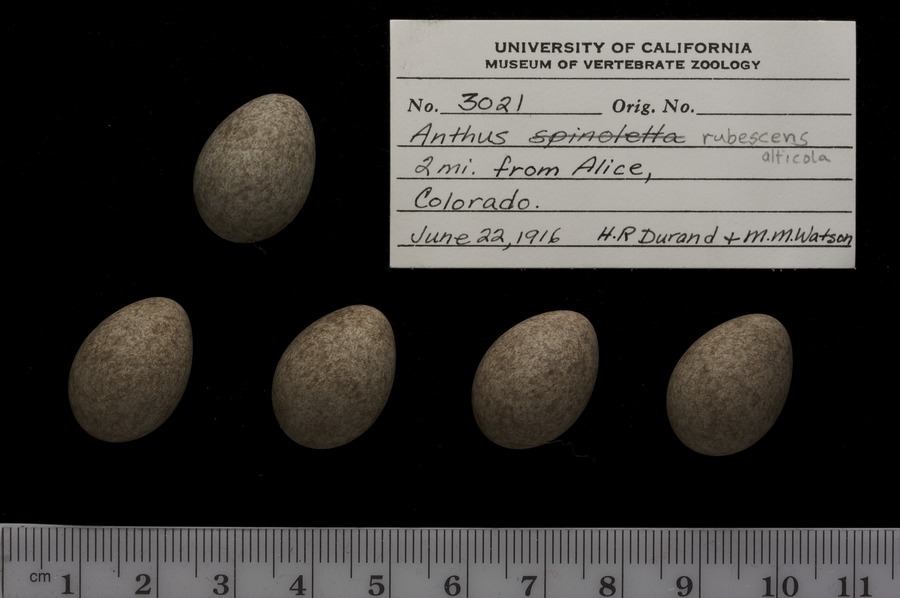 UNIVERSITY OF CALIFORNIA
MUSEUM OF VERTEBRATE ZOOLOGY
No. 3021 Orig. No.
Anthus spinoletta rubescens
alticola
2 mi. from Alice,
Colorado.
June 22, 1916 H.R Durand + M.M. Watson
cm 1 2 3 4 5 6 7 8 9 10 11